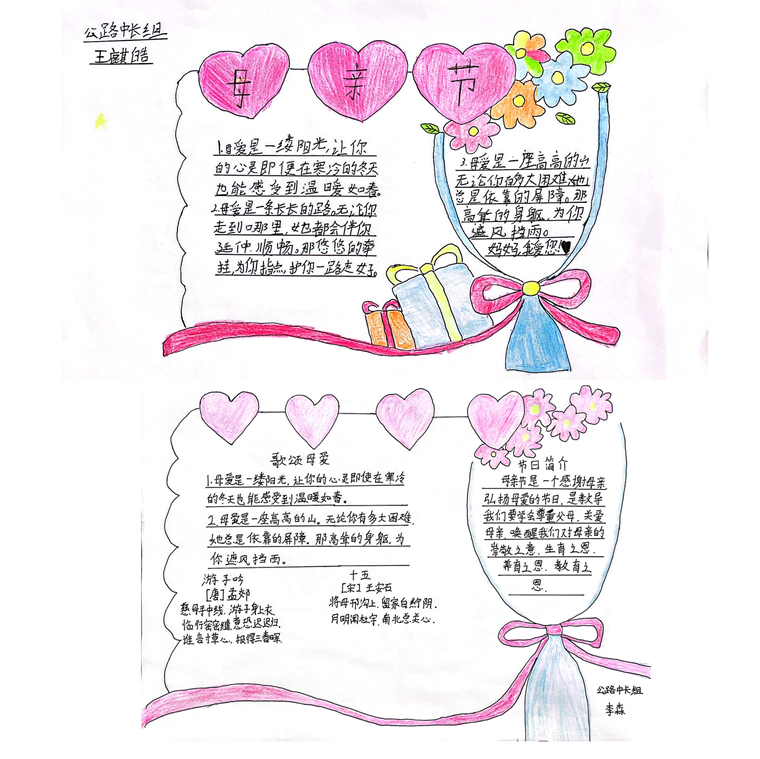 公路中长组
王麒皓
母 亲 节
1.母爱是一缕阳光,让你
的心灵即便在寒冷的冬天
也能感受到温暖如春。
2.母爱是一条长长的路。无论你
走到哪里,她都会伴你
延伸顺畅。那悠悠的牵
挂,为你指点,护你一路走好。
3.母爱是一座高高的山
无论你有多大困难,她
总是依靠的屏障。那
高耸的身躯,为你
遮风挡雨。
妈妈,我爱您!
歌颂母爱
1.母爱是一缕阳光,让你的心灵即使在寒冷
的冬天也能感受到温暖如春。
2.母爱是一座高高的山。无论你有多大困难,
她总是依靠的屏障。那高耸的身躯,为
你遮风挡雨。
游子吟
[唐]孟郊
慈母手中线,游子身上衣
临行密密缝,意恐迟迟归。
谁言寸草心,报得三春晖。
十五
[宋]王安石
将母邗沟上,留家白纻阴。
月明闻杜宇,南北总关心。
节日简介
母亲节是一个感谢母亲
弘扬母爱的节日,是教导
我们要学会尊重父母,关爱
母亲,唤醒我们对母亲的
崇敬之意,生育之恩,
养育之恩,教育之
恩.
公路中长组
李森